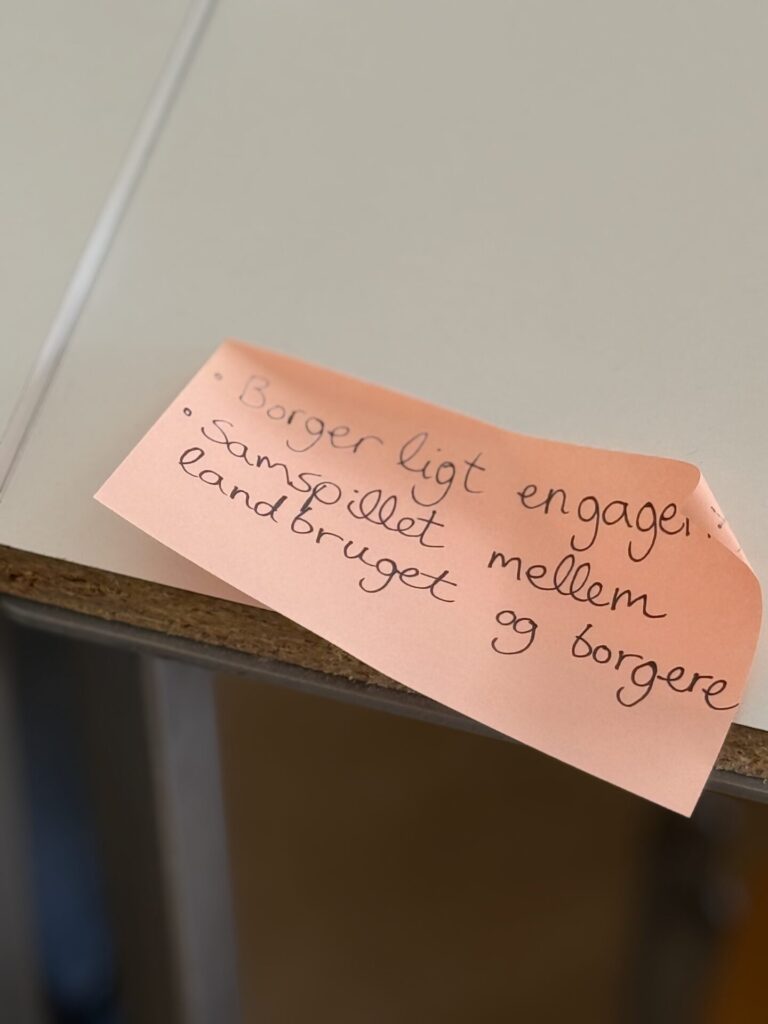 • Borger ligt
• Samspillet mellem
landbruget og borgere